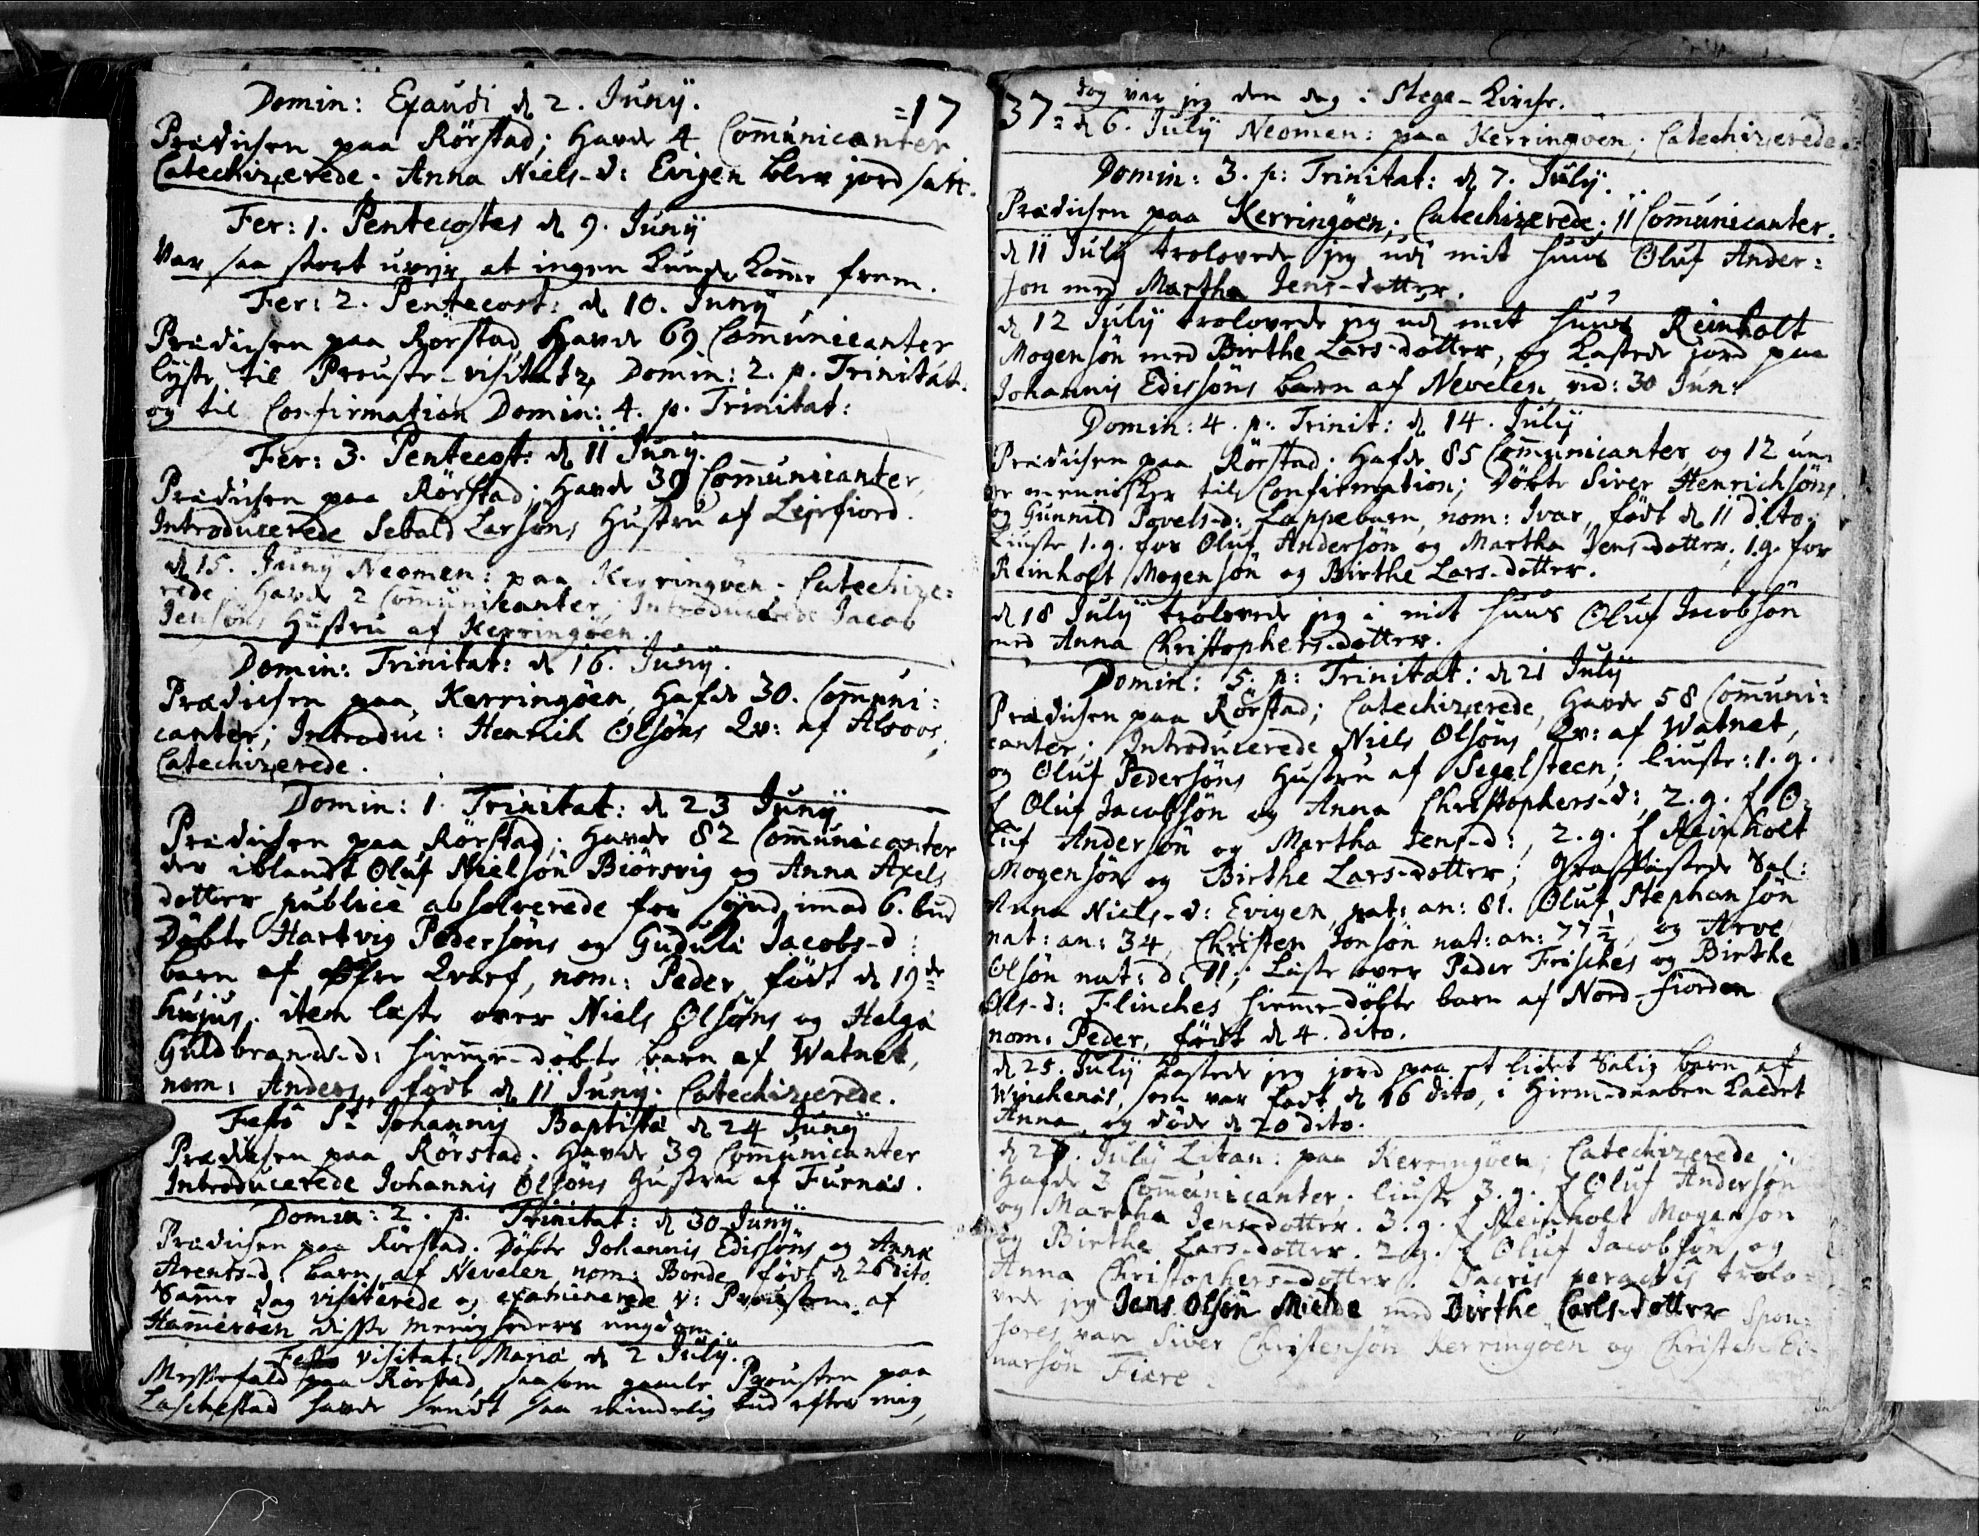 Domin: Exaudi d 2. Junÿ.
=17
Prædichen paa Rörstad; Havde 4 Com̄unicanter
Catechizerede. Anna Niels-d: Evigen blev jord satt.
Fer: 1. Pentecostes d 9. Junÿ
Var saa stort uvejr at ingen kunde kom̄e frem.
Fer: 2. Pentecost: d 10. Junÿ
Prædichen paa Rörstad Havde 69 Com̄unicanter
lÿste til Prouste-visitatz Domin: 2. p. Trinitat.
og til Confirmation Domin: 4. p. Trinitat:
Fer: 3. Pentecost: d 11 Junÿ.
Prædichen paa Rörstad; Havde 39 Com̄unicanter,
Introducerede Sebald Larsöns Hustru af Lejrfiord.
d 15. Junÿ Neomen: paa Kerringöen; Catechize=
rede; Havde 2 Com̄unicanter; Introducerede Jacob
Jensöns Hustru af Kerringöen.
Domin: Trinitat: d 16. Junÿ.
Prædichen paa Kerringöen, Hafde 30. Com̄uni=
canter; Introduc: Henrich Olsöns Qv: af
Catechizerede.
Domin: 1. Trinitat: d 23 Junÿ
Prædichen paa Rörstad; Havde 82 Com̄unicanter
der iblandt Oluf Nielsön Biörsvig og Anna Axels
dotter publicè absolverede for sÿnd imod 6. bud
Döbte Hartvig Pedersöns og Gudula Jacobs-d:
barn af Qvarf, nom: Peder, födt d 19de
hujus. item læste over Niels Olsöns og Helga
Guldbrands-d: hiem̄e-döbte barn af Watnet,
nom: Anders, födt d 11 Junÿ. Catechizerede.
Festo St Johannis Baptistæ d 24 Junÿ
Prædichen paa Rörstad. Havde 39 Com̄unicanter
Introducerede Johannis Olsöns Hustru af Furnæs.
Domin: 2. p. Trinitat: d 30 Junÿ.
Prædichen paa Rörstad. Döbte Johannis Edissöns og Anna
Arents-d: barn af Nevelen nom: Bonde födt d 26 dito.
Sam̄e dag visiterede og examinerede v: Prousten af
Ham̄eröen disse menigheders ungdom.
Festo visitat: Mariæ d 2 Julÿ.
Messefald paa Rörstad saasom gamle Prousten paa
havde sendt saa mindelig bud efter mig,
37=
dog var jeg den dag i Stege-Kirche.
d 6. Julÿ Neomen: paa Kerringöen; Catechizerede
Domin: 3. p: Trinitat: d 7. Julÿ.
Prædichen paa Kerringöen; Catechizerede; 11 Com̄unicanter.
d 11 Julÿ trolovede jeg udi mit huus Oluf Ander=
sön med Martha Jens-dotter.
d 12 Julÿ trolovede jeg udi mit huus Reinholt
Mogensön med Birthe Lars-dotter, og kastede jord paa
Johannis Edissöns barn af Nevelen, vid: 30 Jun:
Domin: 4. p. Trinit: d 14. Julÿ
Prædichen paa Rörstad. Hafde 85 Com̄unicanter og 12 un-
ge mennisker til Confirmation; Döbte Siver Henrichsöns
og Gunnild Povels-d: Lappebarn, nom: Ivar, födt d 11 dito;
liuste 1. g. for Oluf Andersön og Martha Jens-dotter; 1. g. for
Reinholt Mogensön og Birthe Lars-dotter.
d 18 Julÿ trolovede jeg i mit huus Oluf Jacobsön
med Anna Christophers-dotter.
Domin: 5. p: Trinitat: d 21 Julÿ
Prædichen paa Rörstad; Catechizerede, Havde 58 Com̄uni=
canter; Introducerede Niels Olsöns Qv: af Watnet,
og Oluf Pedersöns Hustru af Segelsteen; liuste: 1. g.
f Oluf Jacobsön og Anna Christophers-d:, 2. g. f O=
luf Andersön og Martha Jens-d:, 2. g. f Reinholt
Mogensön og Birthe Lars-dotter; Sal:
Anna Niels-d: Evigen, nat: an: 81. Oluf Stephansön
nat: an: 34, Christen Jonsön nat: an: 77½, og Arve
Olsön nat: d. 11; læste over Peder Frisches og Birthe
Ols-d: Flinches hiem̄e-döbte barn af Nord-fiorden
nom: Peder, födt d 4. dito.
d 25. Julÿ kastede jeg jord paa et lidet Salig barn af
Winchenæs, som var födt d 16 dito, i Hiem̄-daaben kaldet
Anna, og döde d 20 dito.
d 27. Julÿ Litan: paa Kerringöen; Catechizerede;
Hafde 3 Com̄unicanter; liuste 3. g. f Oluf Andersön
og Martha Jens-dotter. 3. g. f Reinholt Mogensön
og Birthe Lars-dotter. 2. g. f Oluf Jacobsön og
Anna Christophers-dotter. Sacris peractis trolo=
vede jeg Jens Olsön Mielde med Birthe Carls-dotter Spon=
sores vare Siver Christensön Kerringöen og Christen Ei=
narsön Fiære.